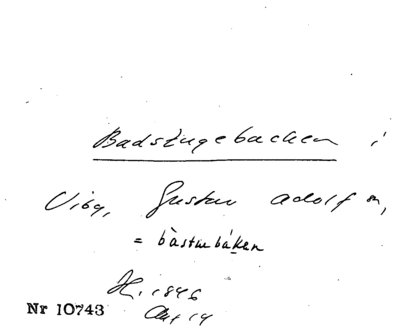 Badstugebacken i
Viby, Gustav Adolf sn,
= bàstubáken
H. 1846
Nr 10743
Akt 14